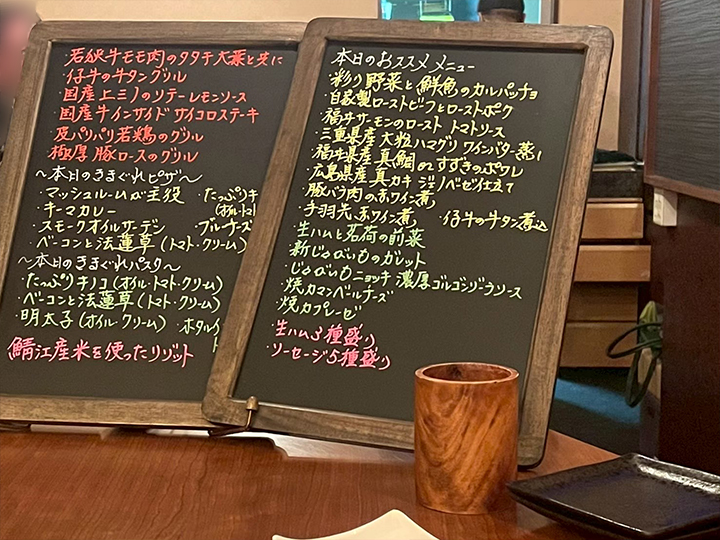 若狭牛モモ肉のタタキ 大葉と共に
・仔牛の牛タングリル
・国産上ミノのソテーレモンソース
・国産牛インサイドサイコロステーキ
・皮パリパリ若鶏のグリル
・極厚豚ロースのグリル
〜本日のきまぐれピザ〜
・マッシュルームが主役 ・たっぷりキ
・キーマカレー (オイル・トマト
・スモークオイルサーデン ブルーチーズ
・ベーコンと法蓮草(トマト・クリーム)
〜本日のきまぐれパスタ〜
・たっぷりキノコ(オイル・トマト・クリーム)
・ベーコンと法蓮草(トマト・クリーム)
・明太子(オイル・クリーム) ・ホタルイ
鯖江産米を使ったリゾット
本日のおススメメニュー
・彩り野菜と鮮魚のカルパッチョ
・自家製ローストビーフとローストポーク
・福井サーモンのロースト トマトソース
・三重県産大粒ハマグリ ワインバター蒸し
・福井県産真鯛のとすずきのポワレ
・広島県産真カキ ジェノベーゼ仕立て
・豚バラ肉の赤ワイン煮
・手羽先赤ワイン煮 ・仔牛の牛タン煮込
・生ハムと無花果の前菜
・新じゃがいものガレット
・じゃがいもニョッキ 濃厚ゴルゴンゾーラソース
・焼カマンベールチーズ
・焼カプレーゼ
・生ハム3種盛り
・ソーセージ5種盛り